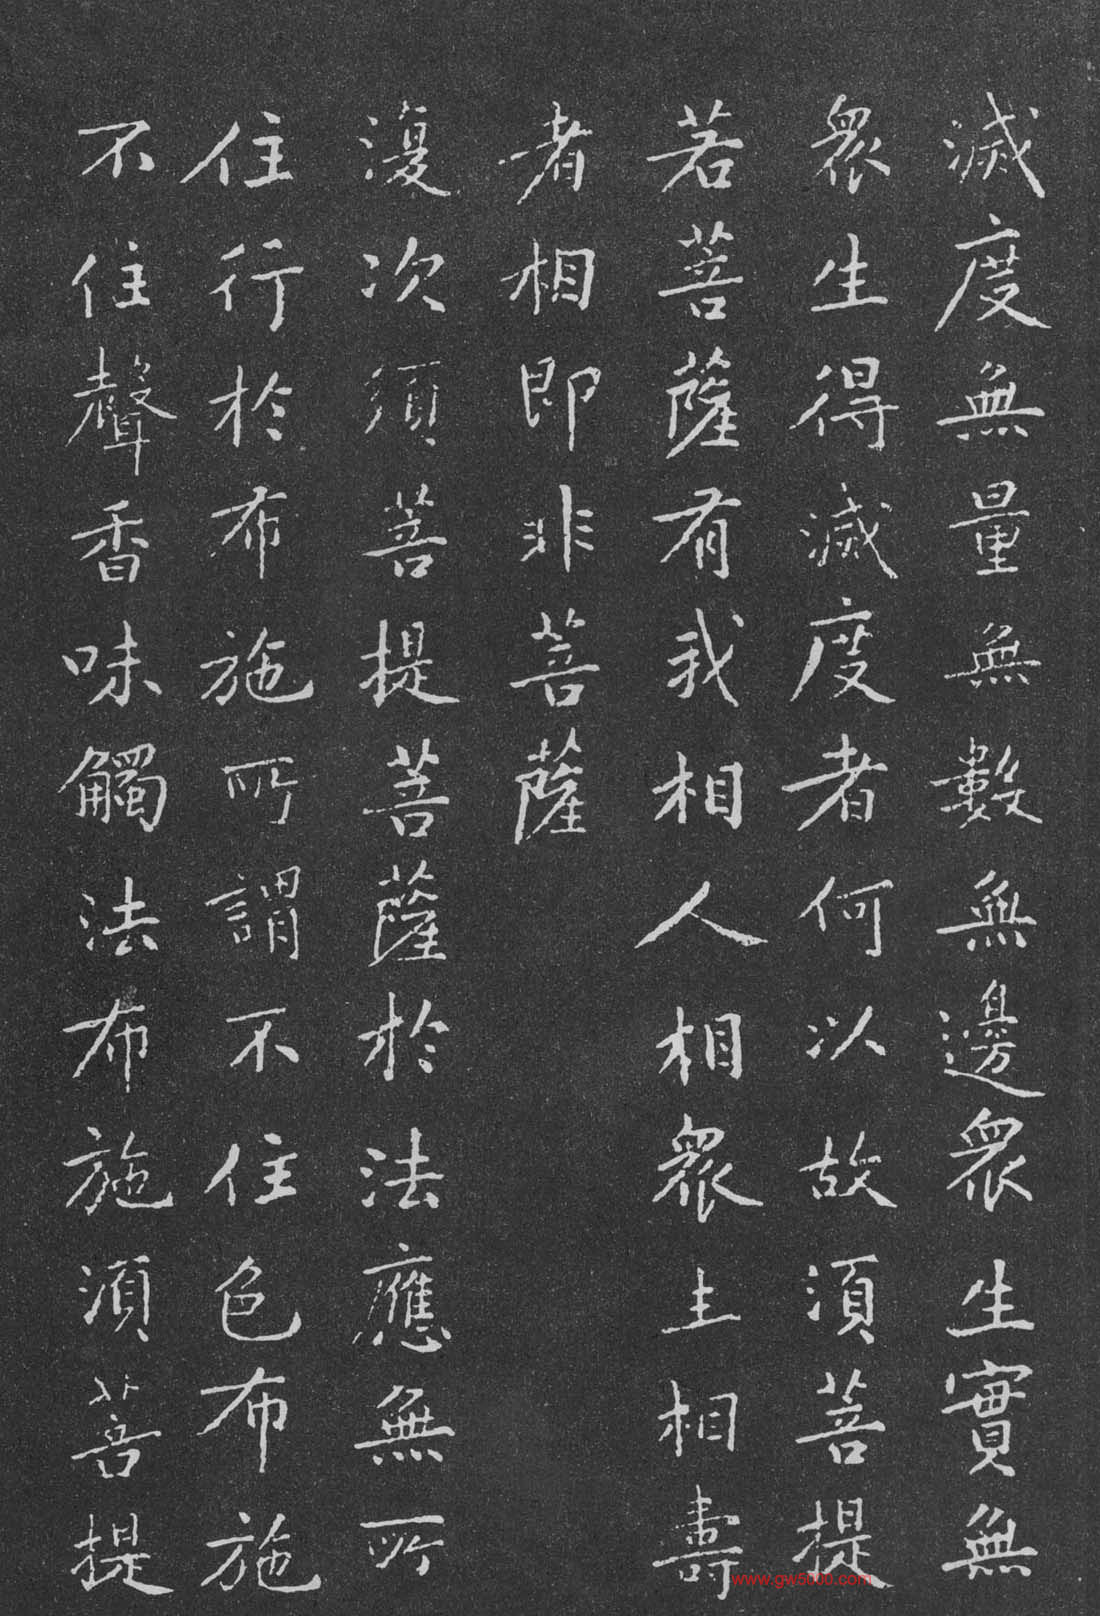 滅度無量無數無邊衆生實無
衆生得滅度者何以故須菩提
若菩薩有我相人相衆生相壽
者相即非菩薩
復次須菩提菩薩於法應無所
住行於布施所謂不住色布施
不住聲香味觸法布施須菩提
www.gw5000.com